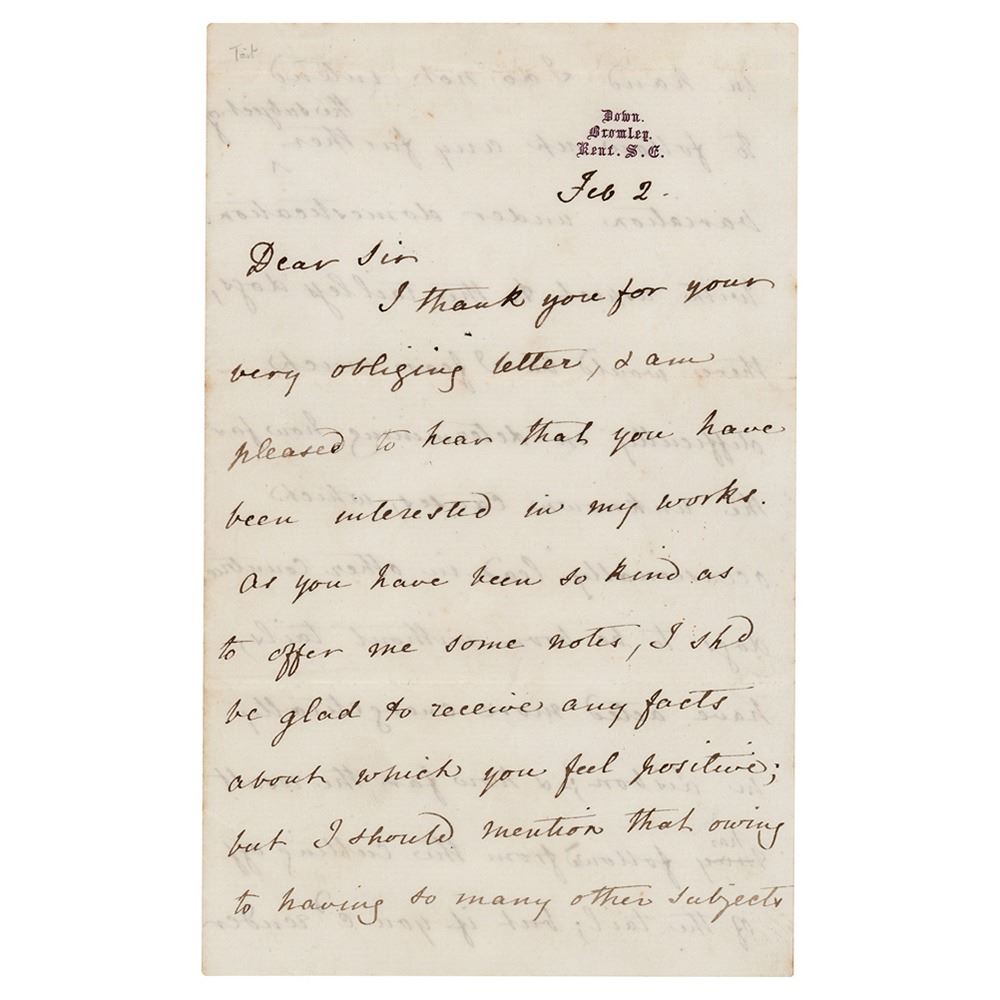 Tait
Down.
Bromley.
Kent. S. E.
Feb 2.
Dear Sir
I thank you for your
very obliging letter, & am
pleased to hear that you have
been interested in my works.
As you have been so kind as
to offer me some notes, I shd
be glad to receive any facts
about which you feel positive;
but I should mention that owing
to having so many other subjects